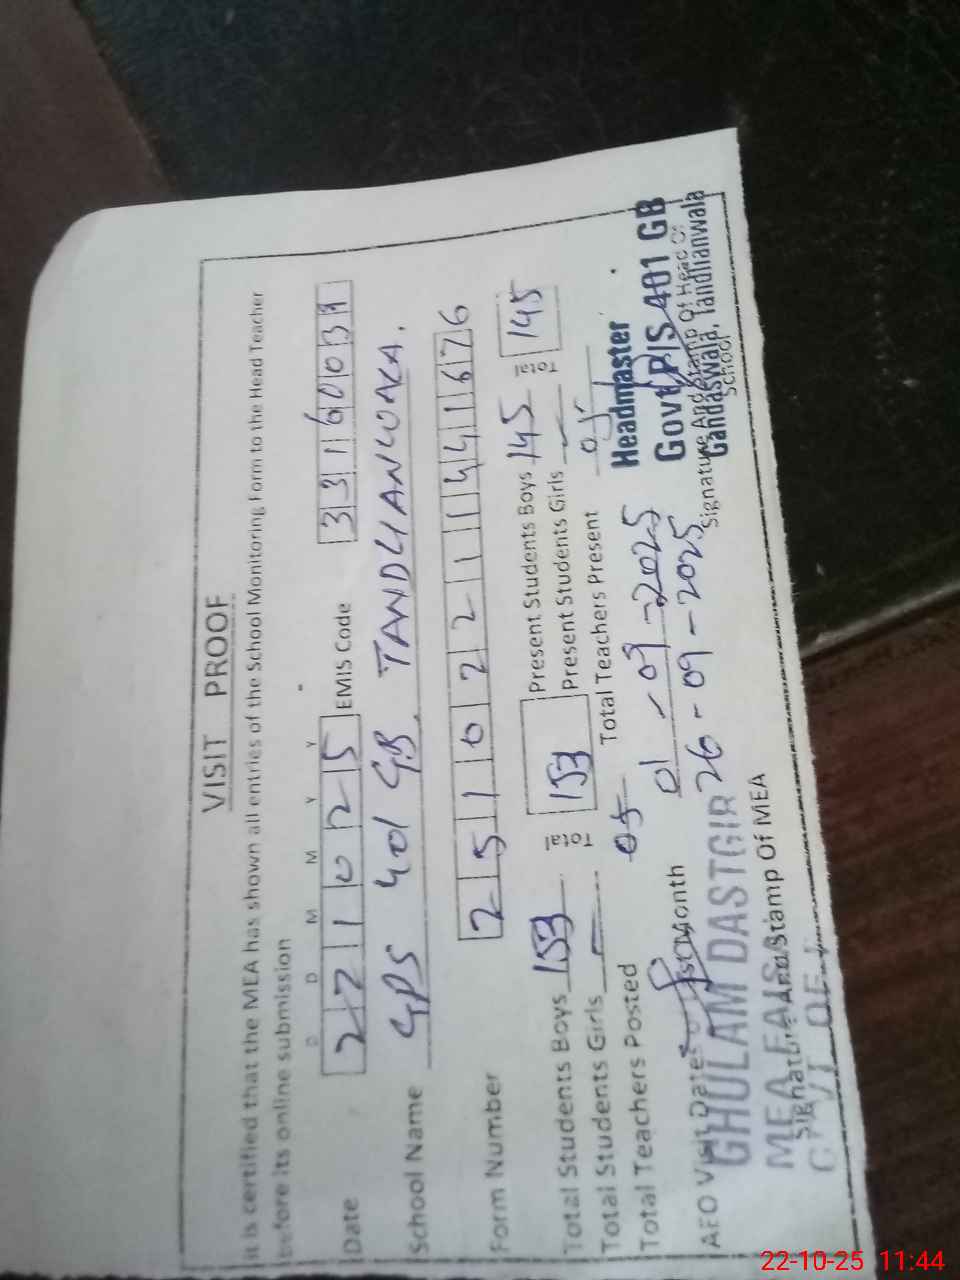 VISIT PROOF
It is certified that the MEA has shown all entries of the School Monitoring Form to the Head Teacher
before its online submission
D D M M Y Y
Date 221025 EMIS Code 33160039
School Name GPS 401 GB TANDLIANWALA.
Form Number 25102211441676
Total Students Boys 153 Total 153 Present Students Boys 145 Total 145
Total Students Girls — Present Students Girls —
Total Teachers Posted 05 Total Teachers Present 05
AEO Visit Dates Of Last Month 01-09-2025
26-09-2025
GHULAM DASTGIR
MEA
Signature And Stamp Of MEA
Headmaster
Govt P/S 401 GB
Signature And Stamp Of Head Of
Gandaswala, Tandlianwala
School
22-10-25 11:44